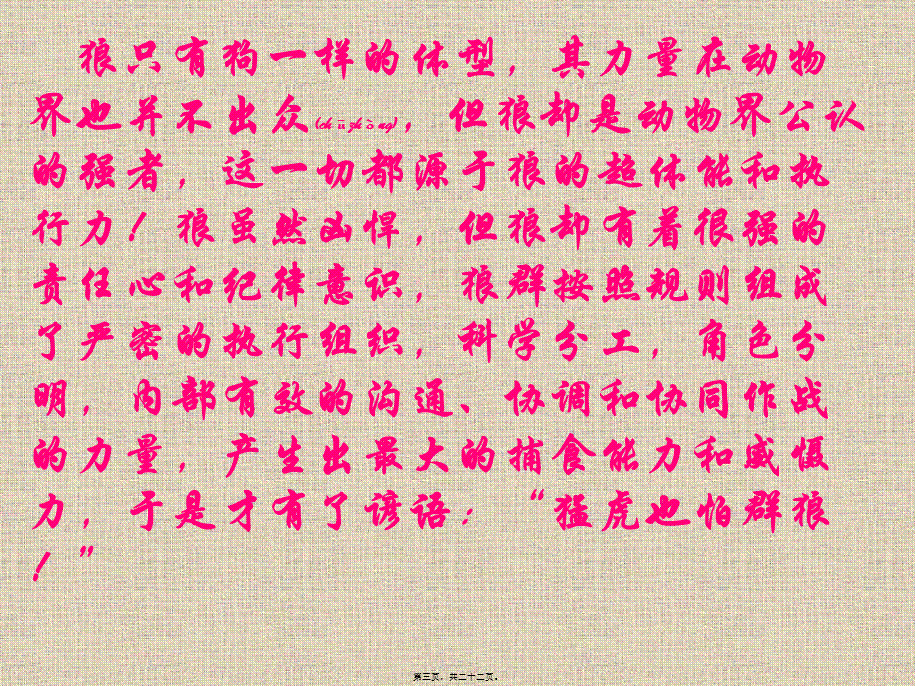 狼只有狗一样的体型，其力量在动物
界也并不出众(chūzhòng)，但狼却是动物界公认
的强者，这一切都源于狼的超体能和执
行力！狼虽然凶悍，但狼却有着很强的
责任心和纪律意识，狼群按照规则组成
了严密的执行组织，科学分工，角色分
明，内部有效的沟通、协调和协同作战
的力量，产生出最大的捕食能力和威慑
力，于是才有了谚语：“猛虎也怕群狼
！”
第三页，共二十二页。